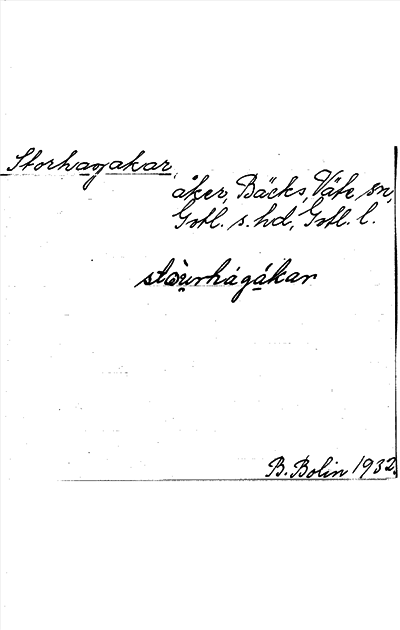 Storhagakar,
åker, Bäcks, Väte sn,
Gotl. s. hd, Gotl. l.
B. Bolin 1932.